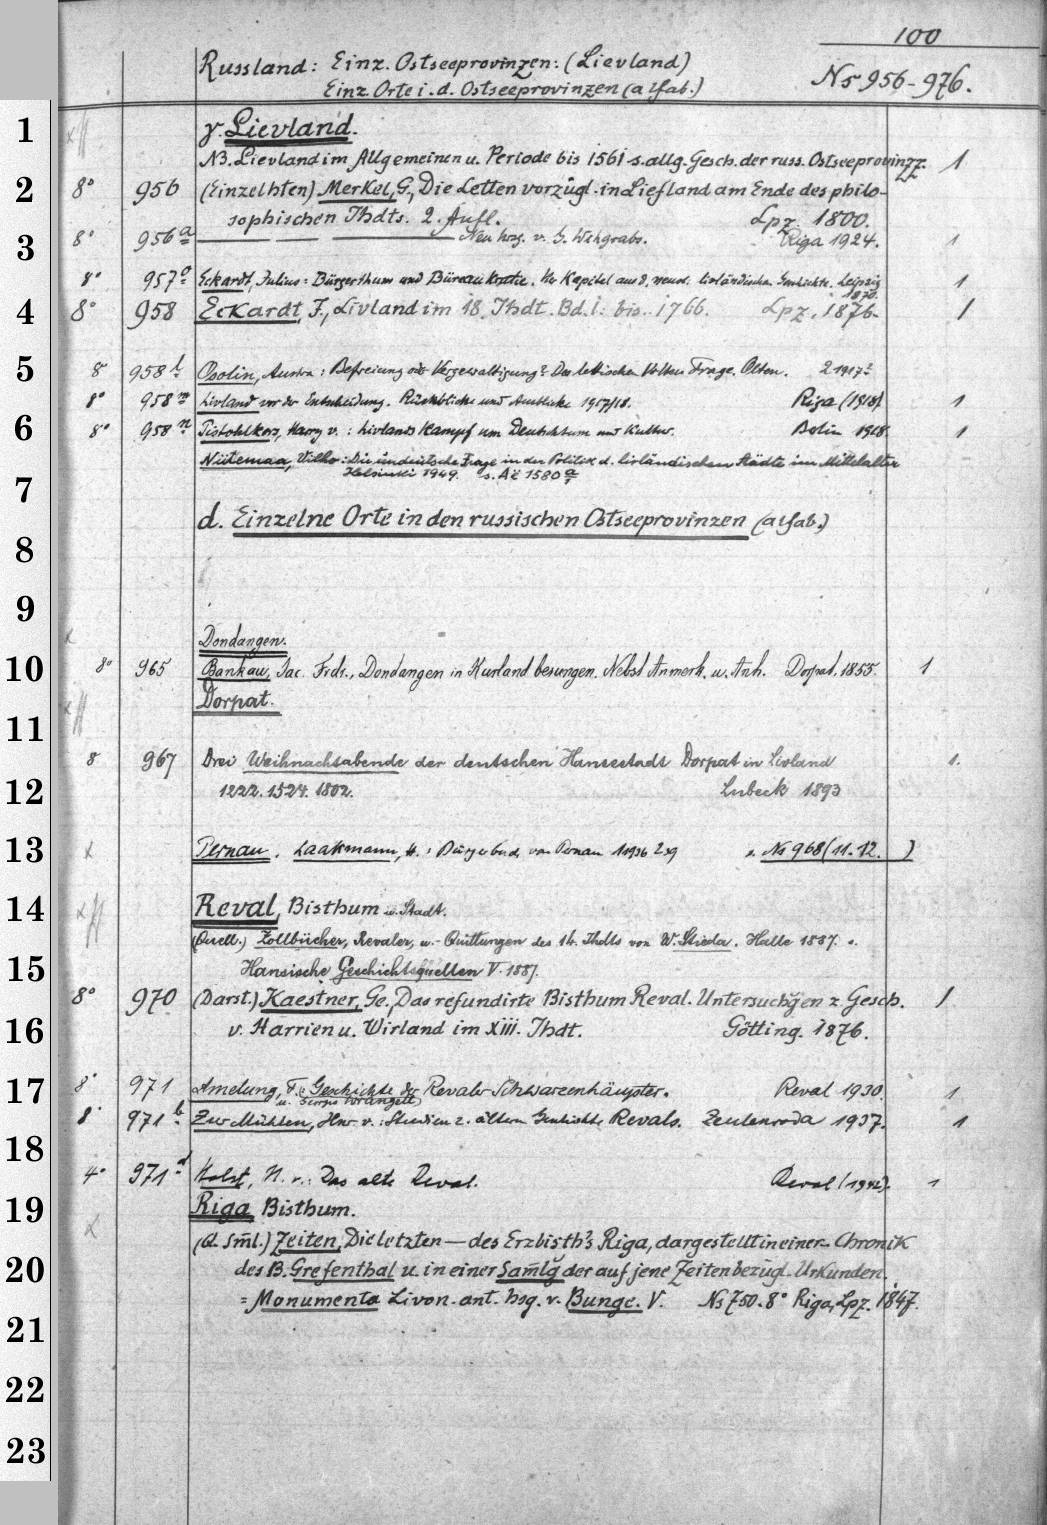 100
Russland: Einz. Ostseeprovinzen: (Lievland)
Einz. Orte i. d. Ostseeprovinzen (alfab.)
No 956-976.
1
γ. Lievland.
NB. Lievland im Allgemeinen u. Periode bis 1561 s. allg. Gesch. der russ. Ostseeprovinzz. 1
2 8° 956 (Einzelhten) Merkel, G., Die Letten vorzügl. in Liefland am Ende des philo-
sophischen Jhdts. 2. Aufl. Lpz. 1800.
3 8° 956 a Neu hrsg. v. Wehgrabs. Riga 1924. 1
8° 957 Eckardt, Julius: Bürgerthum und Büreaukratie. Vier Kapitel aus d. neuest. livländischen Geschichte. Leipzig 1870. 1
4 8° 958 Eckardt, J., Livland im 18. Jhdt. Bd. 1: bis 1766. Lpz. 1876. 1
5 8° 958 l Osolin, Austra: Befreiung oder Vergewaltigung? Des lettischen Volkes Frage. Olten. 1917?
8° 958 m Livland vor der Entscheidung. Rückblicke und Ausblicke 1917/18. Riga (1918). 1
6 8° 958 n Pistohlkors, Harry v.: Livlands Kampf um Deutschtum und Kultur. Berlin 1918. 1
Niitemaa, Vilho: Die undeutsche Frage in der Politik d. livländischen Städte im Mittelalter
Helsinki 1949. s. Ac 1580
7
d. Einzelne Orte in den russischen Ostseeprovinzen (alfab.)
8
9
Dondangen.
10 8° 965 Bankau, Jac. Frdr., Dondangen in Kurland besungen. Nebst Anmerk. u. Anh. Dorpat, 1855. 1
Dorpat.
11
8 967 Drei Weihnachtsabende der deutschen Hansestadt Dorpat in Livland 1.
12 1222. 1524. 1802. Lübeck 1893
13 Pernau. Laakmann, H.: Bürgerbuch von Pernau s. No 968 (11-12. )
14 Reval, Bisthum u. Stadt.
(Quell.) Zollbücher, Revaler, u. -Quittungen des 14. Jhdts von W. Stieda. Halle 1887. s.
15 Hansische Geschichtsquellen V. 1887.
8° 970 (Darst.) Kaestner, Ge., Das refundirte Bisthum Reval. Untersuchgen z. Gesch. 1
16 v. Harrien u. Wirland im XIII. Jhdt. Götting. 1876.
17 8° 971 Amelung, F.: Geschichte der Revaler Schwarzenhäupter. Reval 1930. 1
8° 971 b Zur Mühlen, Hnr. v.: Studien z. ältern Geschichte Revals. Zeulenroda 1937. 1
18
4° 971 d Holst, N. v.: Das alte Reval. Reval (1942). 1
19 Riga Bisthum.
(Q. Sml.) Zeiten, Die letzten — des Erzbisth's Riga, dargestellt in einer Chronik
20 des B. Grefenthal u. in einer Samlg der auf jene Zeiten bezügl. Urkunden.
= Monumenta Livon. ant. hsg. v. Bunge. V. No 750. 8° Riga, Lpz. 1847.
21
22
23